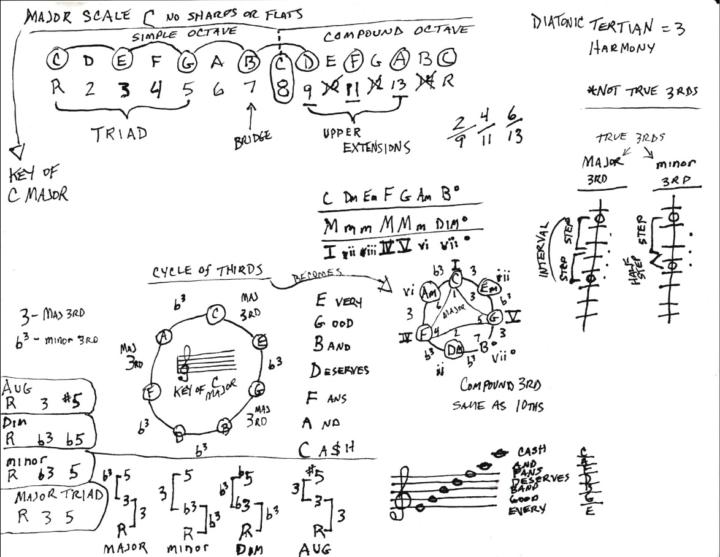 MAJOR SCALE C NO SHARPS OR FLATS
SIMPLE OCTAVE COMPOUND OCTAVE
C D E F G A B C D E F G A B C
R 2 3 4 5 6 7 8 9 11 13 R
TRIAD
BRIDGE
UPPER
EXTENSIONS
2/9 4/11 6/13
DIATONIC TERTIAN = 3
HARMONY
*NOT TRUE 3RDS
TRUE 3RDS
MAJOR
3RD
minor
3RD
INTERVAL
STEP
STEP
STEP
HALF
STEP
KEY OF
C MAJOR
C Dm Em F G Am B°
M m m M M m DIM°
I ii iii IV V vi vii°
CYCLE OF THIRDS
BECOMES
3 - MAJ 3RD
b3 - minor 3RD
C
MAJ
3RD
E
b3
G
MAJ
3RD
B
b3
D
b3
F
MAJ
3RD
A
b3
KEY OF C
MAJOR
EVERY
GOOD
BAND
DESERVES
FANS
AND
CA$H
I
C
3
Em
iii
b3
G
V
3
B°
vii°
b3
Dm
ii
b3
F
IV
3
Am
vi
b3
MAJOR
1 3 5 7 2 4 6
COMPOUND 3RD
SAME AS 10THS
AUG
R 3 #5
DIM
R b3 b5
minor
R b3 5
MAJOR TRIAD
R 3 5
b3 5
3 3
R
MAJOR
3 5
b3 b3
R
minor
b3 b5
b3 b3
R
DIM
#5
3 3
3
R
AUG
CASH C
AND A
FANS F
DESERVES D
BAND B
GOOD G
EVERY E